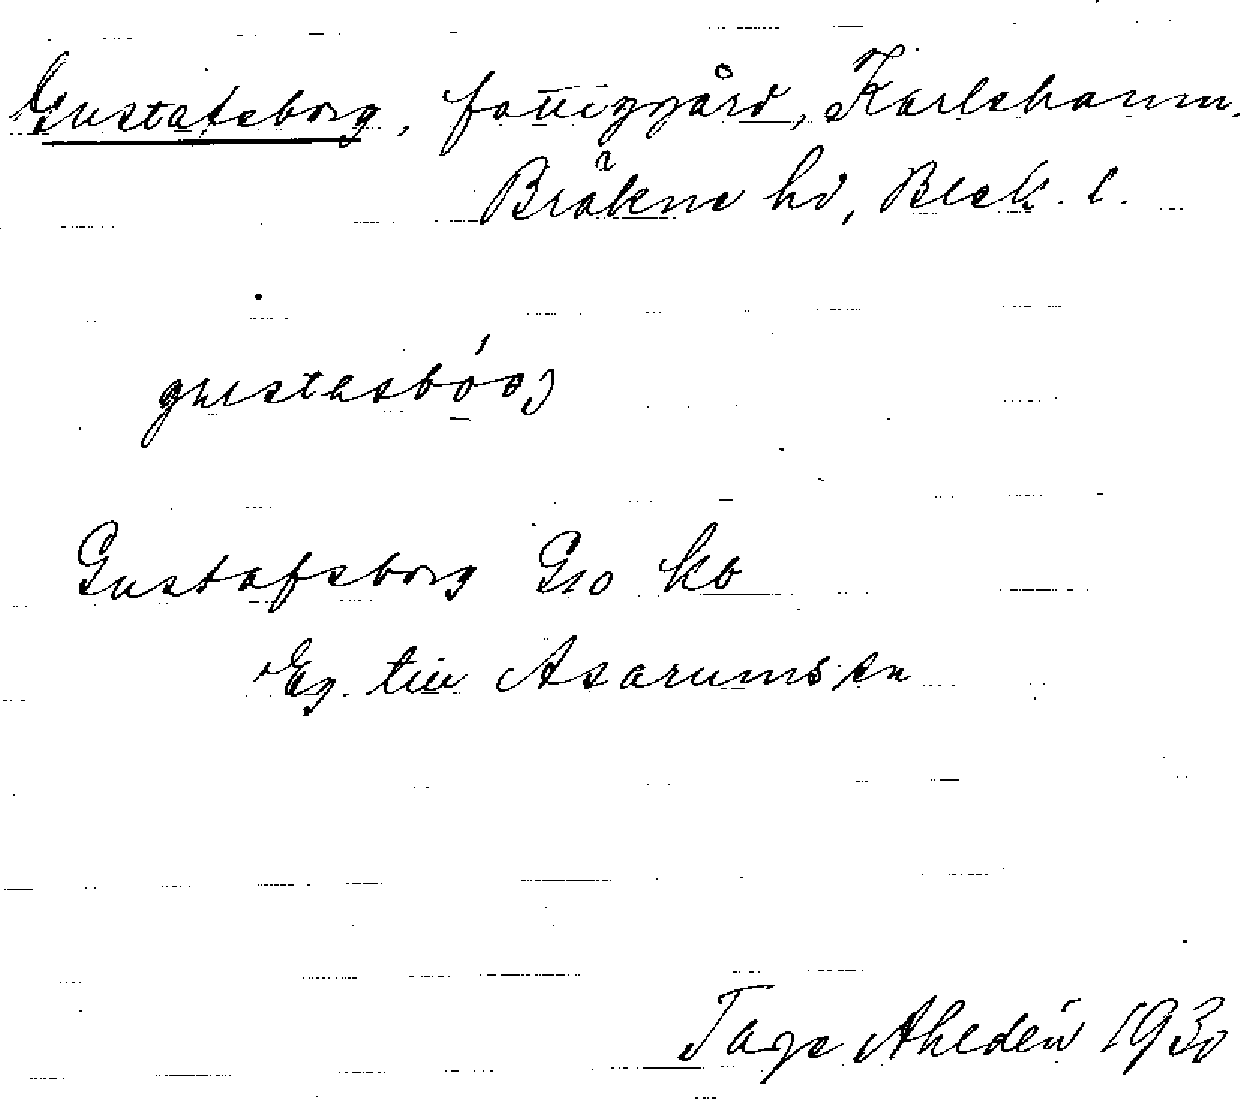 Gustafsborg, fattiggård, Karlshamn.
Bräkne hd, Blek. l.
gustasbórj
Gustafsborg Gso kb
Eg. till Asarums sn
Tage Ahldén 1930